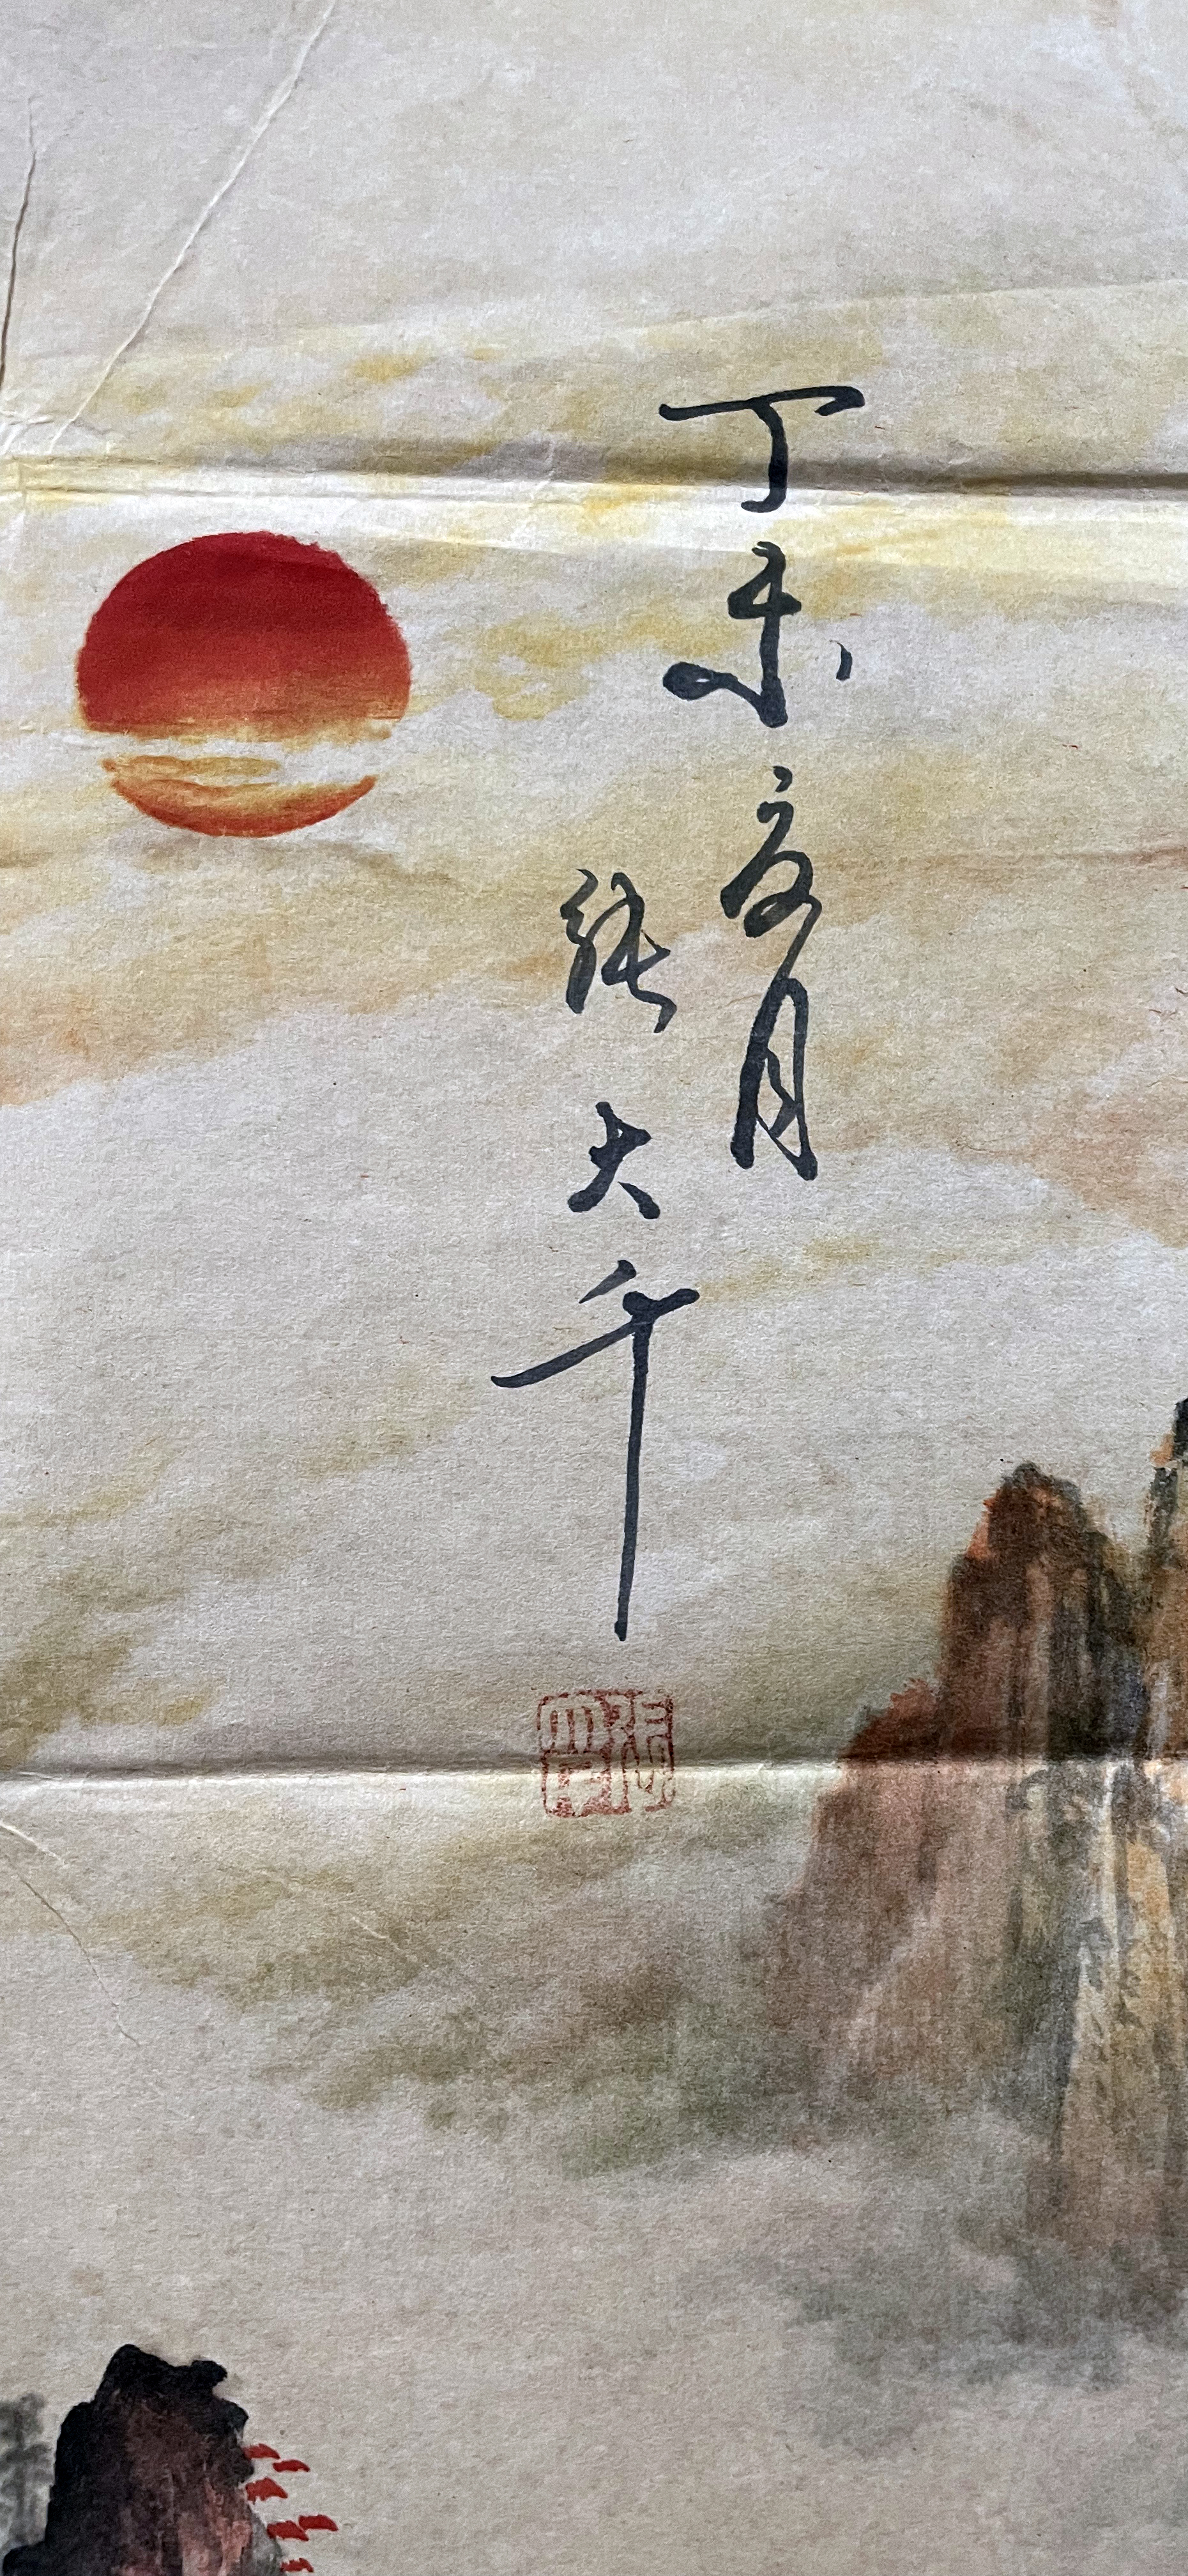 丁未夏月
張大千